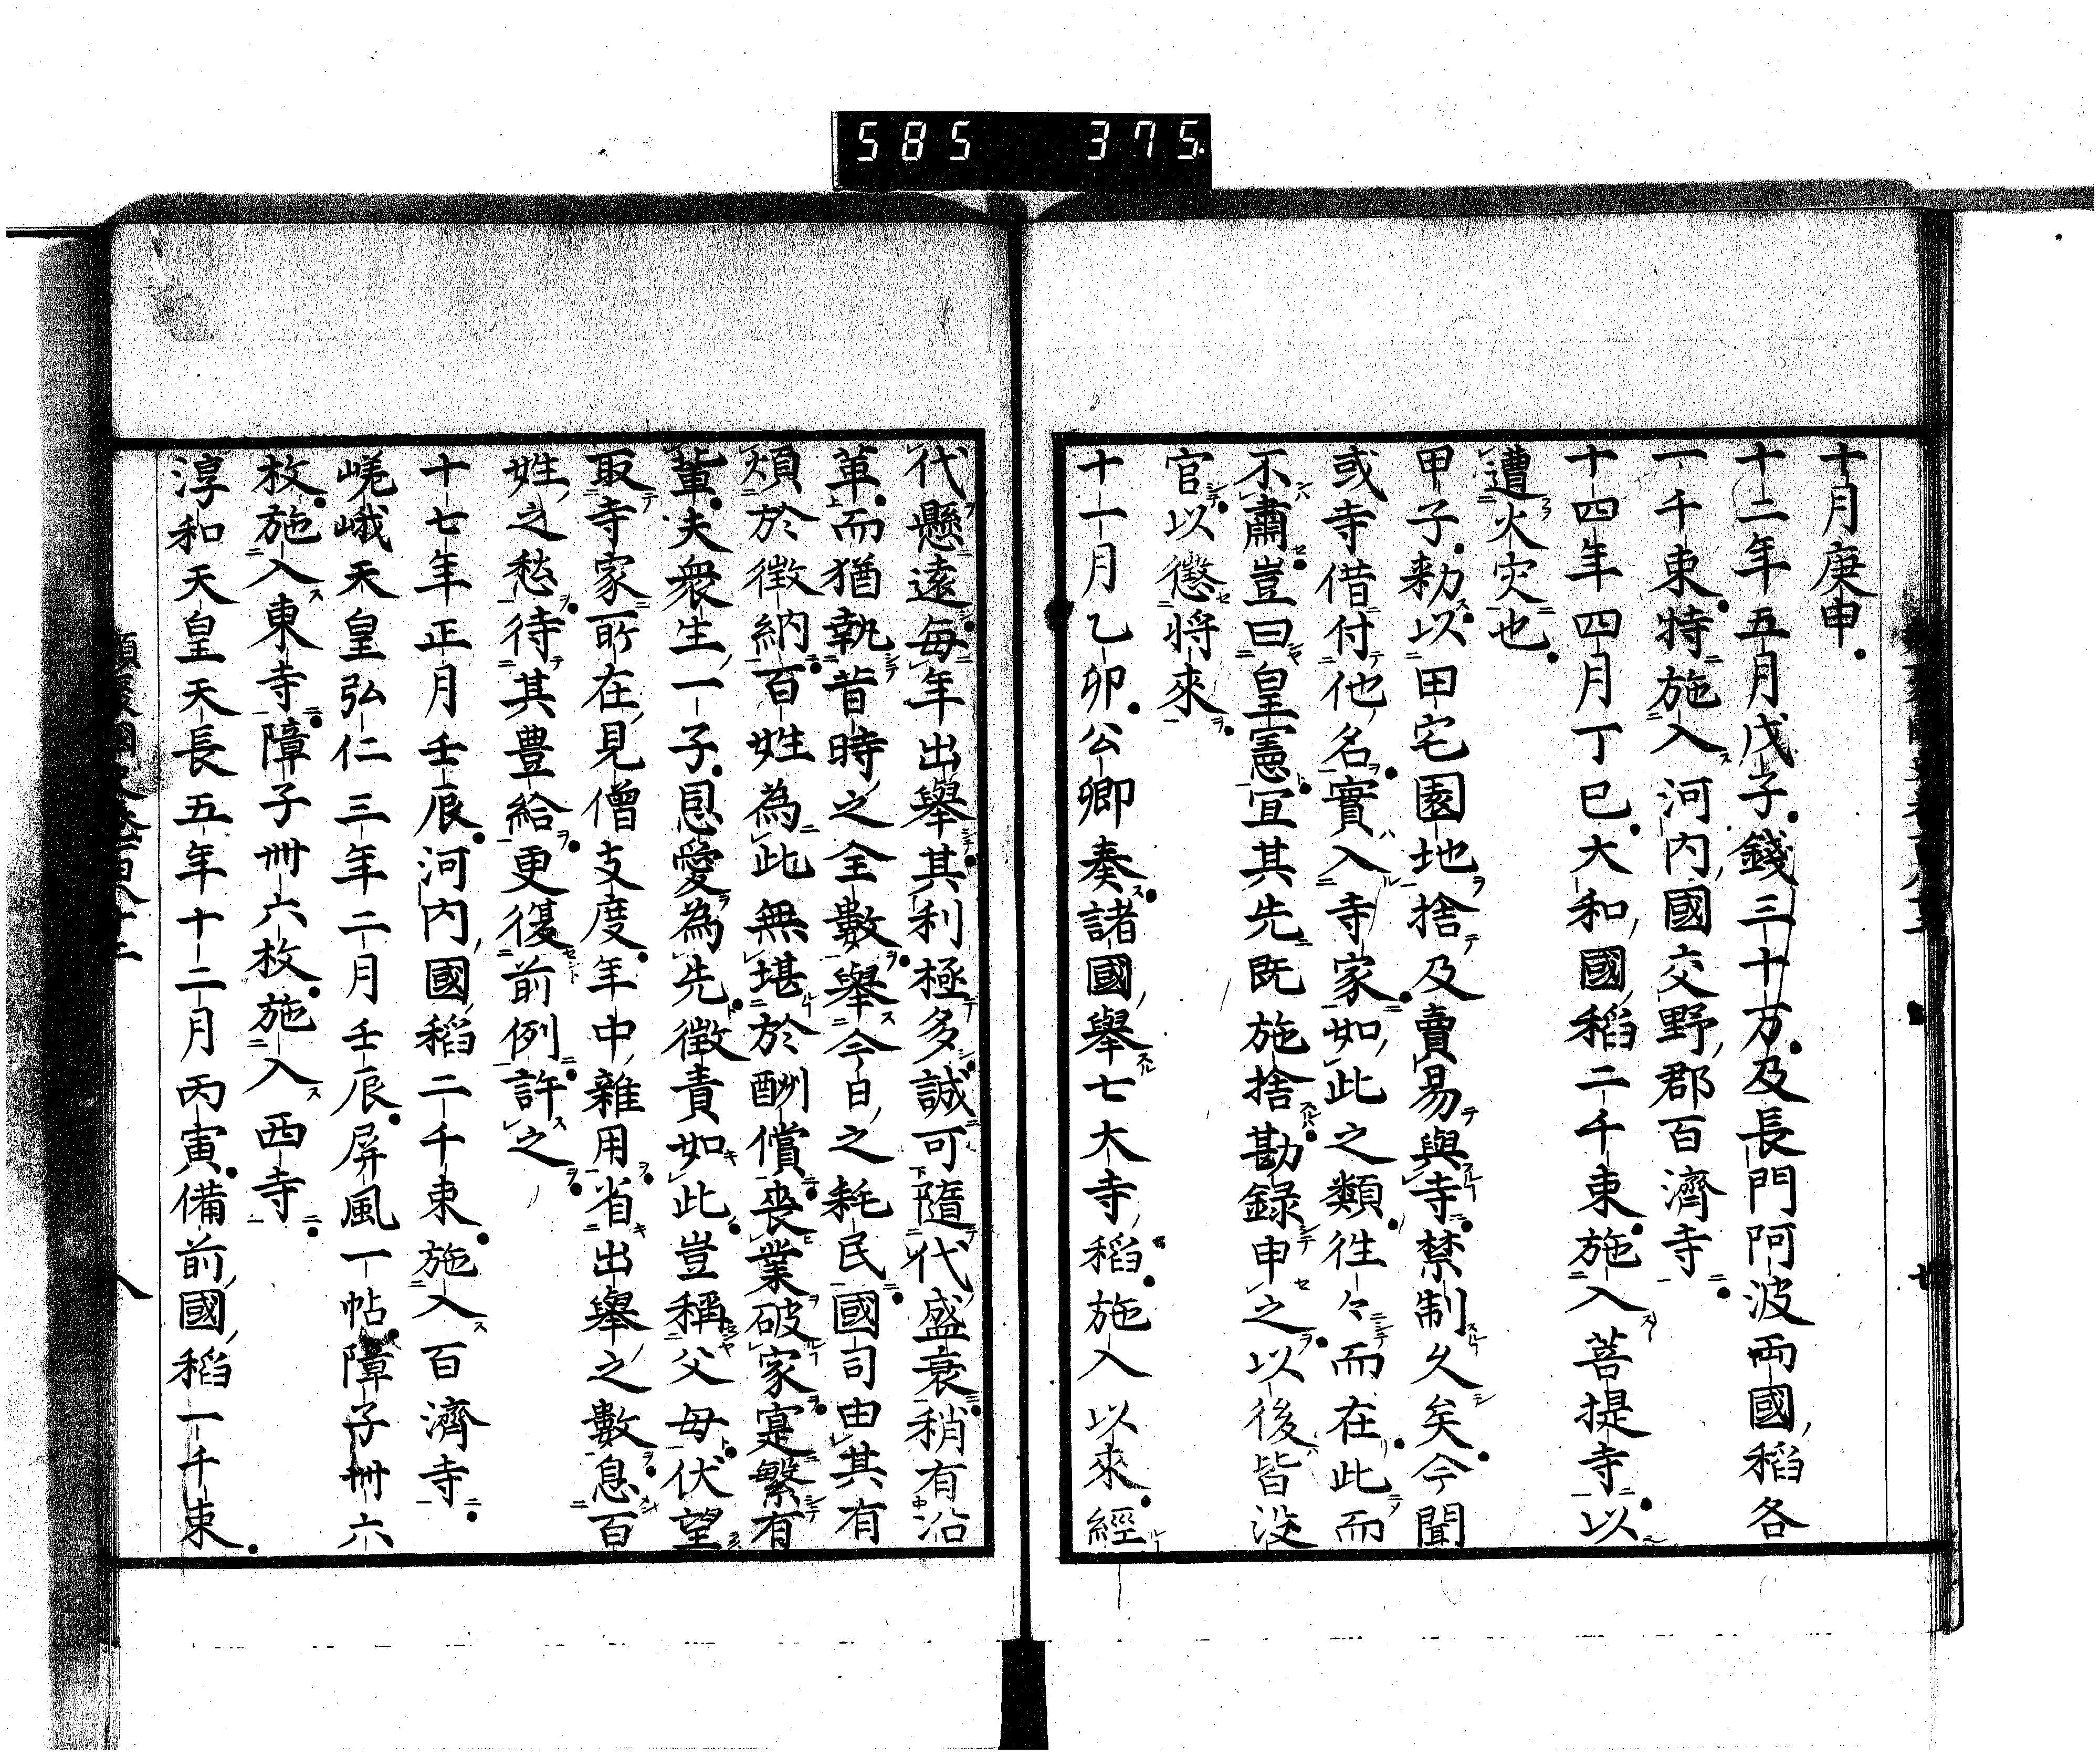 585 375
十月庚申
十二年五月戊子錢三十万及長門阿波両國稻各
一千束特施入河內國交野郡百濟寺
十四年四月丁巳大和國稻二千束施入菩提寺以
遭火灾也
甲子勅以田宅園地捨及賣易與寺禁制久矣今聞
或寺借付他名實入寺家如此之類徃々而在此而
不肅豈曰皇憲宜其先既施捨勘録申之以後皆没
官以懲將來
十一月乙卯公卿奏諸國舉七大寺稻施入以來經
代懸遠每年出舉其利極多誠可隨代盛衰稍有沿
革而猶執昔時之全數舉今日之耗民國司由其有
煩於徵納百姓為此無堪於酬償喪業破家寔繁有
輩夫衆生一子恩愛為先徵責如此豈稱父母伏望
取寺家所在見僧支度年中雜用省出舉之數息百
姓之愁待其豊給更復前例許之
十七年正月壬辰河內國稻二千束施入百濟寺
嵯峨天皇弘仁三年二月壬辰屏風一帖障子卌六
枚施入東寺障子卌六枚施入西寺
淳和天皇天長五年十二月丙寅備前國稻一千束
八